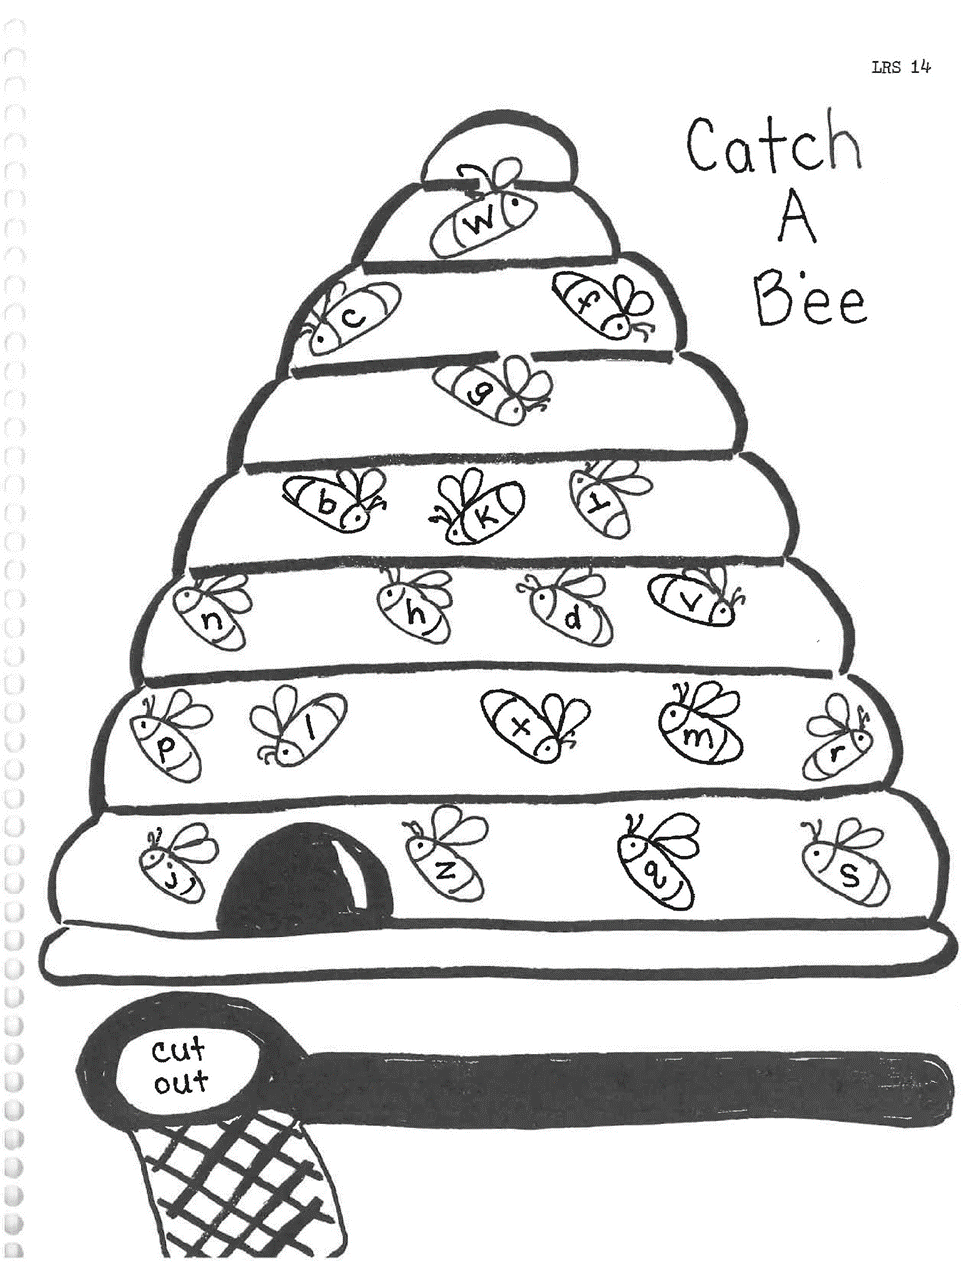 LRS 14
Catch
A
Bee
w
c f
g
b k
n h d v
p l t m r
j z q s
cut
out